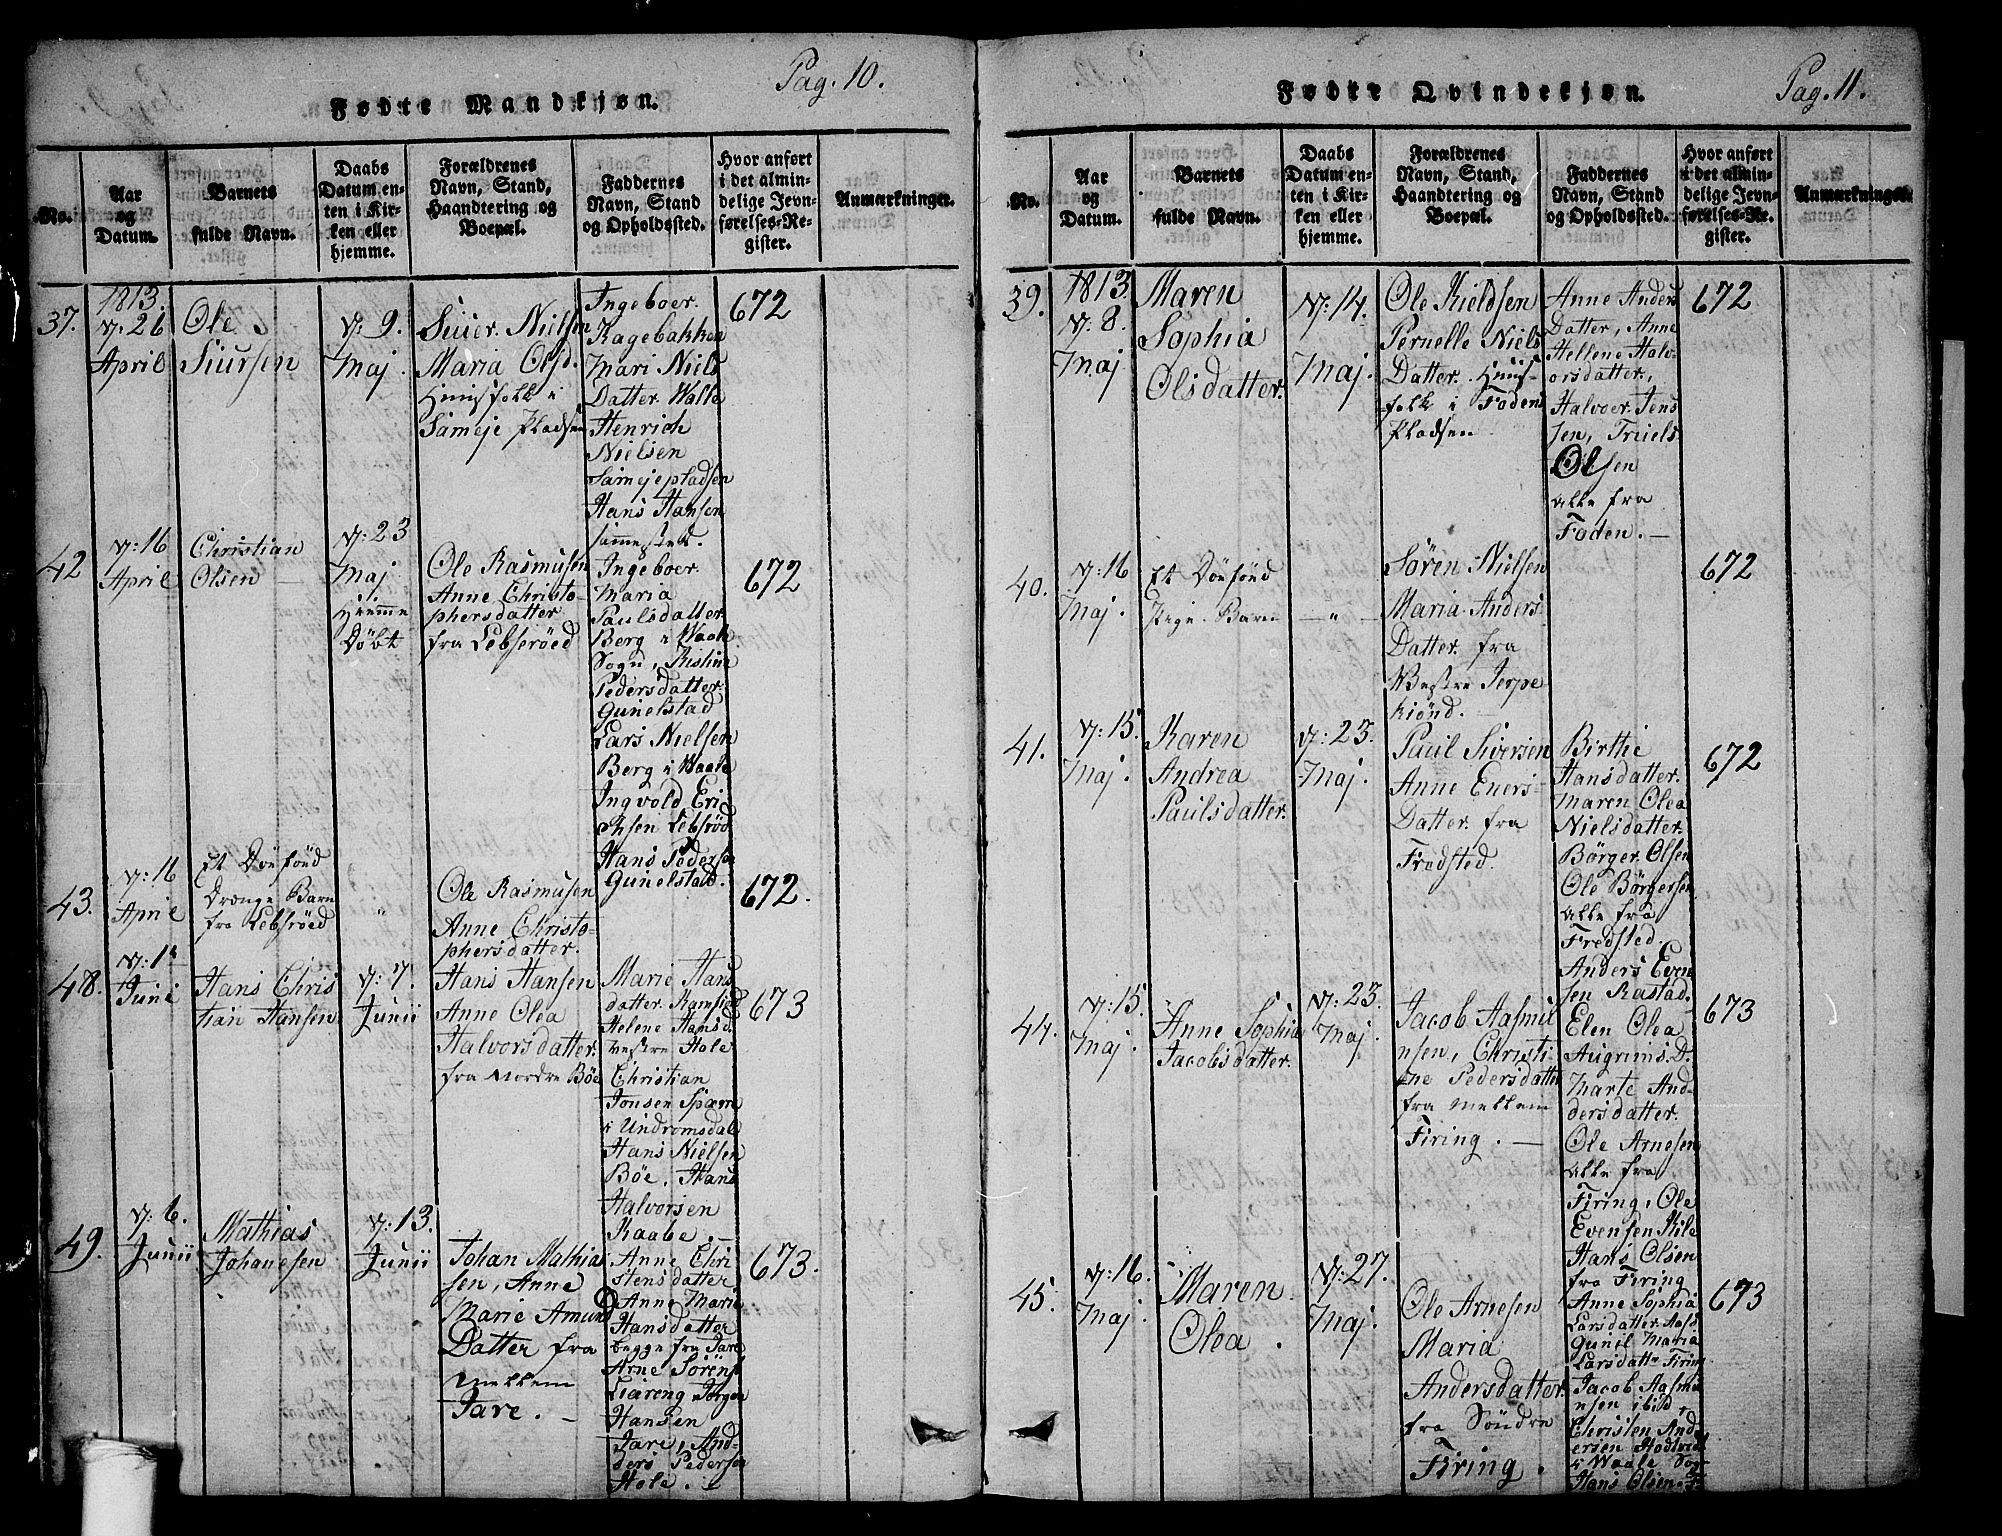 Pag. 10.
Fødte Mandkjøn.
No.
Aar
og
Datum.
Barnets
fulde Navn.
Daabs
Datum en-
ten i Kir-
ken eller
hjemme.
Forældrenes
Navn, Stand,
Haandtering og
Boepæl.
Faddernes
Navn, Stand
og Opholdssted.
Hvor anført
i det almin-
delige Jevn-
førelses-Re-
gister.
Anmærkninger.
37.
1813.
d: 26
April
Ole
Siursen
d: 9.
Maj
Siuer Nielsen
Maria Olsd.
Huusfolk i
Sameje Pladsen
Ingeboer
Kagebakken
Mari Niels
Datter Walle
Henrich
Nielsen
Samejepladsen
Hans Hansen
samested.
672
42
d: 16
April
Christian
Olsen
d: 23
Maj
Hjemme
Døbt
Ole Rasmusen
Anne Christo-
phersdatter
fra Lebserøed
Ingeboer
Maria
Paulsdatter
Berg i Waale
Sogn, Kistina
Pedersdatter
Gunelstad
Lars Nielsen
Berg i Waale
Ingvold Eri-
chsen Lebsrød
Hans Pedersen
Gunelstad.
672
43.
d: 16
April
Et Dødfød
Drænge Barn
fra Lebsrøed
"
Ole Rasmusen
Anne Christo-
phersdatter.
672.
48.
d: 1
Juni
Hans Chris
tian Hansen
d: 7.
Junii
Hans Hansen
Anne Olea
Halvorsdatter
fra Nordre Böe
Marie Hans
datter
Helene Hansd.
vestre Hole
Christian
Jonsen Sparre
i Undromsdal
Hans Nielsen
Böe, Hans
Halvorsen
Raabe.
673
49.
d: 6.
Junii
Mathias
Johanesen
d: 13.
Junii
Johan Mathia
sen, Anne
Marie Amund
Datter fra
mellem
Jare.
Anne Chri
stensdatter
Anne Marie
Hansdatter
begge fra Jare
Arne Sörens
Liareng Jörgen
Hansen
Jare, And-
ders Pedersen
Hole.
673.
Pag. 11.
Fødte Qvindekjøn.
No.
Aar
og
Datum.
Barnets
fulde Navn.
Daabs
Datum en-
ten i Kir-
ken eller
hjemme.
Forældrenes
Navn, Stand,
Haandtering og
Boepæl.
Faddernes
Navn, Stand
og Opholdssted.
Hvor anført
i det almin-
delige Jevn-
førelses-Re-
gister.
Anmærkninger.
39.
1813
d: 8.
Maj
Maren
Sophia
Olsdatter.
d: 14.
Maj.
Ole Kieldsen
Pernelle Niels
Datter. Huus-
folk i Foden
Pladsen
Anne Anders
Datter, Anne
Hellene Halv-
orsdatter,
Halvoer Jens
sen, Truels
Olsen
alle fra
Foden.
672
40.
d: 16
Maj.
Et Dødfød
Pige Barn
— " —
Sören Nielsen
Maria Anders
Datter fra
Westre Jerpe
kiönd.
672
41.
d: 15.
Maj.
Karen
Andrea
Paulsdatter.
d: 23.
Maj.
Paul Siversen
Anne Eners-
Datter. fra
Fredsted
Birthe
Hansdatter.
Maren Olea
Nielsdatter.
Börger Olsen
Ole Börgersen
alle fra
Fredsted.
672
44.
d: 15.
Maj.
Anne Sophia
Jacobsdatter.
d: 23.
Maj.
Jacob Aasmu
nsen, Christi-
ne Pedersdatter
fra mellem
Firing.
Anders Even
sen Rastad.
Elen Olea
Augrims. D.
Marte And-
dersdatter.
Ole Arnesen
alle fra
Firing, Ole
Evensen Kile
Hans Olsen
fra Firing
673
45.
d: 16.
Maj.
Maren
Olea.
d: 27.
Maj.
Ole Arnesen
Maria
Andersdatter
fra Söndre
Firing.
Anne Sophia
Larsdatter
Gunil Maria
Larsdattr Firing
Jacob Aasmu
nsen ibid,
Christen And
ersen
i Waale Sogn
Hans Olsen
673